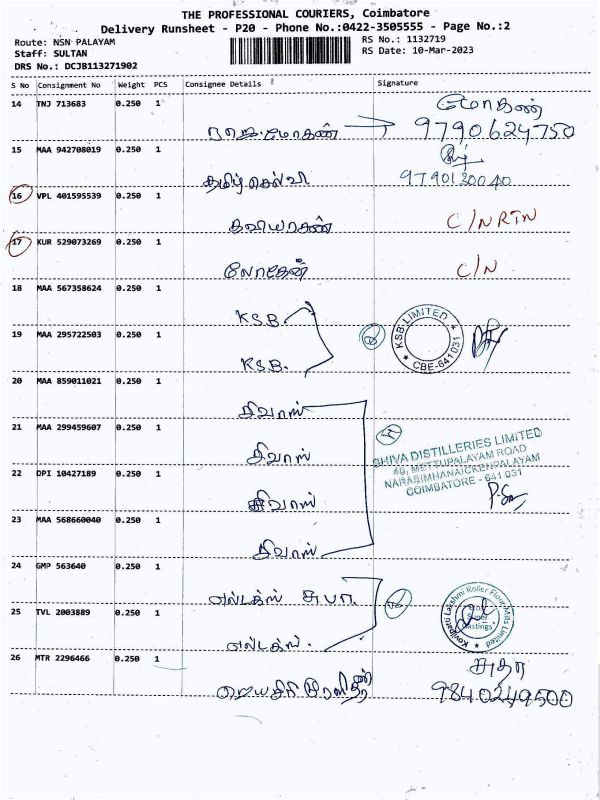 THE PROFESSIONAL COURIERS, Coimbatore
Delivery Runsheet - P20 - Phone No.:0422-3505555 - Page No.:2
Route: NSN PALAYAM RS No.: 1132719
Staff: SULTAN RS Date: 10-Mar-2023
DRS No.: DCJB113271902
S No Consignment No Weight PCS Consignee Details Signature
14 TNJ 713683 0.250 1 மோகன்
ராஜ மோகன் 9790624750
15 MAA 942708019 0.250 1
தமிழ் செல்வி 9790130040
16 VPL 401595539 0.250 1
கவியரசன் C/N RTN
17 KUR 529073269 0.250 1
லோகேஸ் C/N
18 MAA 567358624 0.250 1
KSB. KSB-LIMITED CBE-641031
19 MAA 295722503 0.250 1
KSB.
20 MAA 859011021 0.250 1
சிவாஸ்
21 MAA 299459607 0.250 1 SHIVA DISTILLERIES LIMITED
சிவாஸ் 49, METTUPALAYAM ROAD
NARASIMHANAICKENPALAYAM
22 DPI 10427189 0.250 1 COIMBATORE - 641 031
சிவாஸ்
23 MAA 568660040 0.250 1
சிவாஸ்
24 GMP 563640 0.250 1
எல்டக்ஸ் சுபா.
25 TVL 2003889 0.250 1 Kovilpatti Lakshmi Roller Flour Mills Limited
எல்டக்ஸ்.
26 MTR 2296466 0.250 1 சுதா
9840249500